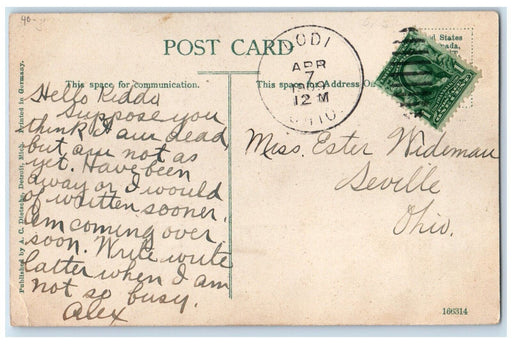 90-
POST CARD
LODI
APR
7
1909
12 M
OHIO.
This space for communication.
This space for Address On
d States
nada,
Hello Kiddo
Suppose you
think I am dead
but am not as
yet. Have been
away or I would
of written sooner.
Am coming over
soon. Write write
latter when I am
not so busy.
Alex
Miss. Ester Wideman
Seville
Ohio.
Published by A. C. Dietsche, Detroit, Mich. Printed in Germany.
166314